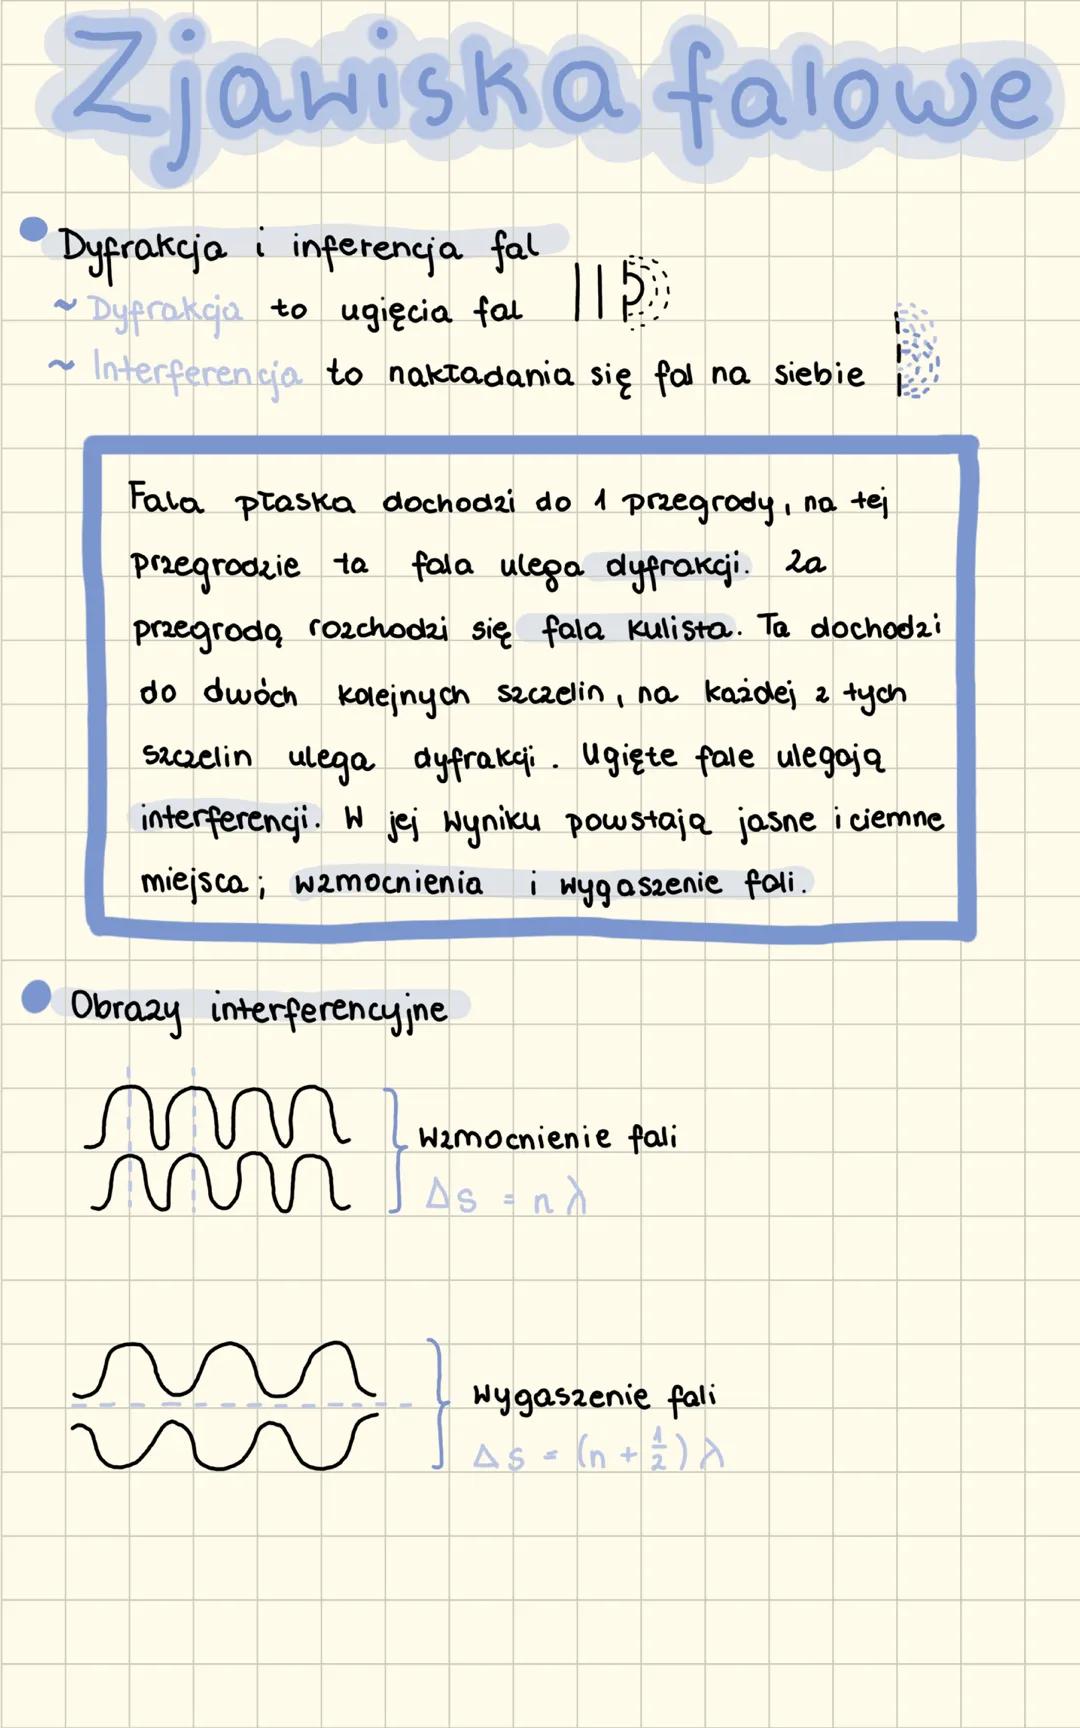 Zjawiska falowe
Dyfrakcja i inferencja fal
~ Dyfrakcja to ugięcia fal
~ Interferencja to nakładania się fal na siebie
Fala płaska dochodzi do 1 przegrody, na tej
przegrodzie ta fala ulega dyfrakcji. Za
przegrodą rozchodzi się fala kulista. Ta dochodzi
do dwóch kolejnych szczelin, na każdej z tych
szczelin ulega dyfrakcji. Ugięte fale ulegają
interferencji. W jej wyniku powstają jasne i ciemne
miejsca; wzmocnienia i wygaszenie fali.
Obrazy interferencyjne
wzmocnienie fali
Δs = nλ
wygaszenie fali
Δs = (n + 1/2) λ